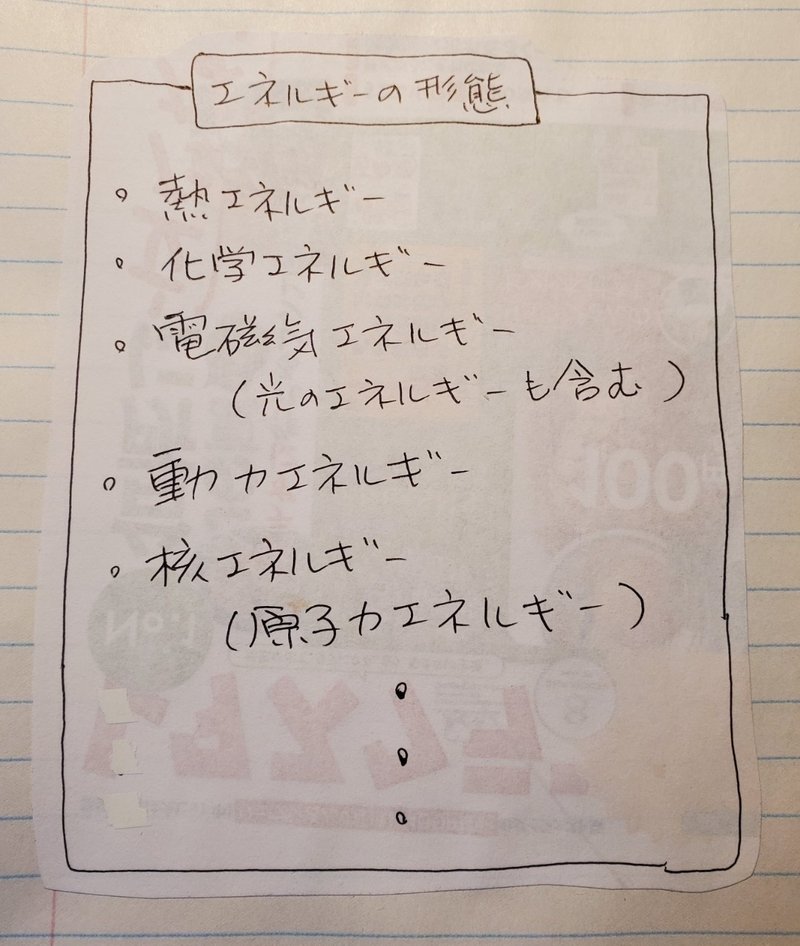 エネルギーの形態
。熱エネルギー
。化学エネルギー
。電磁気エネルギー
(光のエネルギーも含む)
。動力エネルギー
。核エネルギー
(原子力エネルギー)